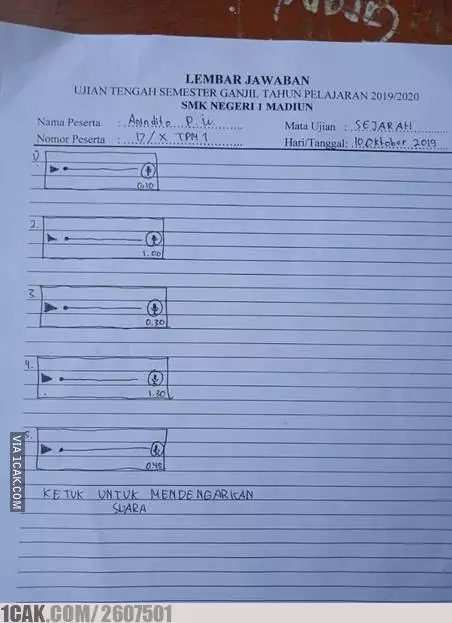 LEMBAR JAWABAN
UJIAN TENGAH SEMESTER GANJIL TAHUN PELAJARAN 2019/2020
SMK NEGERI 1 MADIUN
Nama Peserta : Anindito P.W. Mata Ujian : SEJARAH
Nomor Peserta : 17/X TPM 1 Hari/Tanggal: 10 Oktober 2019
1.
0.10
2.
1.00
3.
0.30
4.
1.30
5.
0.45
KETUK UNTUK MENDENGARKAN
SUARA
VIA 1CAK.COM
1CAK.COM/2607501